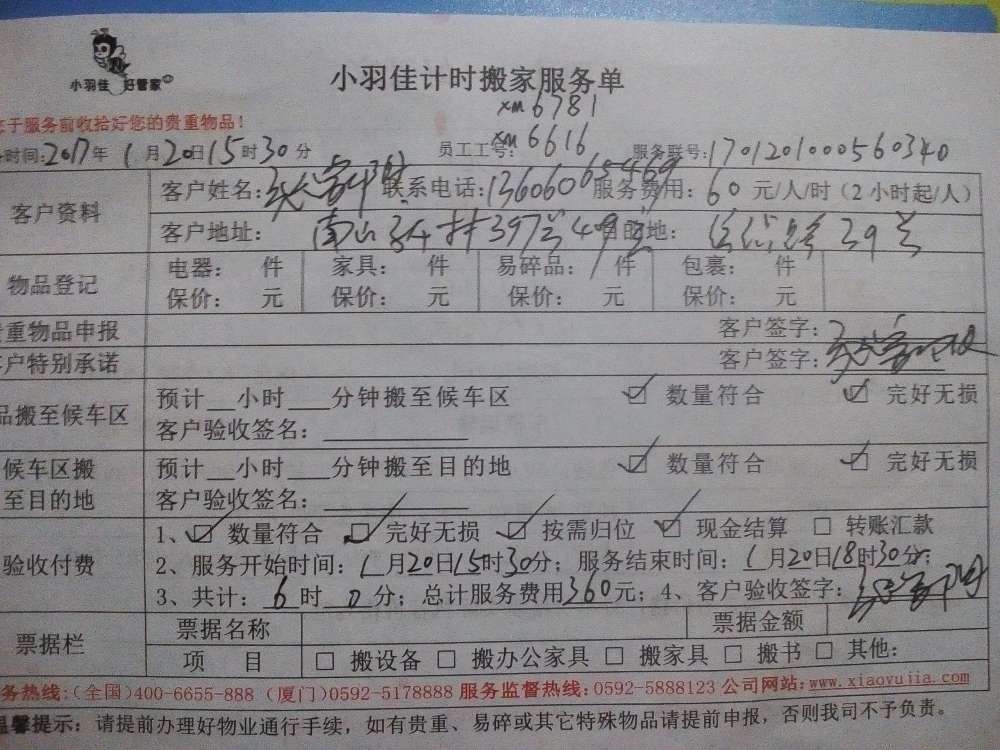 小羽佳 好管家
小羽佳计时搬家服务单
XM6781
XM6616
于服务前收拾好您的贵重物品!
时间:2017年1月20日15时30分 员工工号: 服务联号:1701201000560340
客户资料
客户姓名: 联系电话:13606065469 服务费用:60元/人/时(2小时起/人)
客户地址: 南山 村397号49号 目的地: 39号
物品登记
电器: 件 家具: 件 易碎品: 件 包裹: 件
保价: 元 保价: 元 保价: 元 保价: 元
重物品申报 客户签字:
户特别承诺 客户签字:
品搬至候车区
预计__小时___分钟搬至候车区 ☑ 数量符合 ☑ 完好无损
客户验收签名:
候车区搬至目的地
预计__小时___分钟搬至目的地 ☑ 数量符合 ☑ 完好无损
客户验收签名:
验收付费
1、☑ 数量符合 ☑ 完好无损 ☑ 按需归位 ☑ 现金结算 □ 转账汇款
2、服务开始时间:1月20日15时30分;服务结束时间:1月20日18时30分;
3、共计:6时0分;总计服务费用360元;4、客户验收签字:
票据栏
票据名称 票据金额
项 目 □ 搬设备 □ 搬办公家具 □ 搬家具 □ 搬书 □ 其他:
务热线:(全国)400-6655-888 (厦门)0592-5178888 服务监督热线:0592-5888123 公司网站:www.xiaoyujia.com
温馨提示:请提前办理好物业通行手续,如有贵重、易碎或其它特殊物品请提前申报,否则我司不予负责。